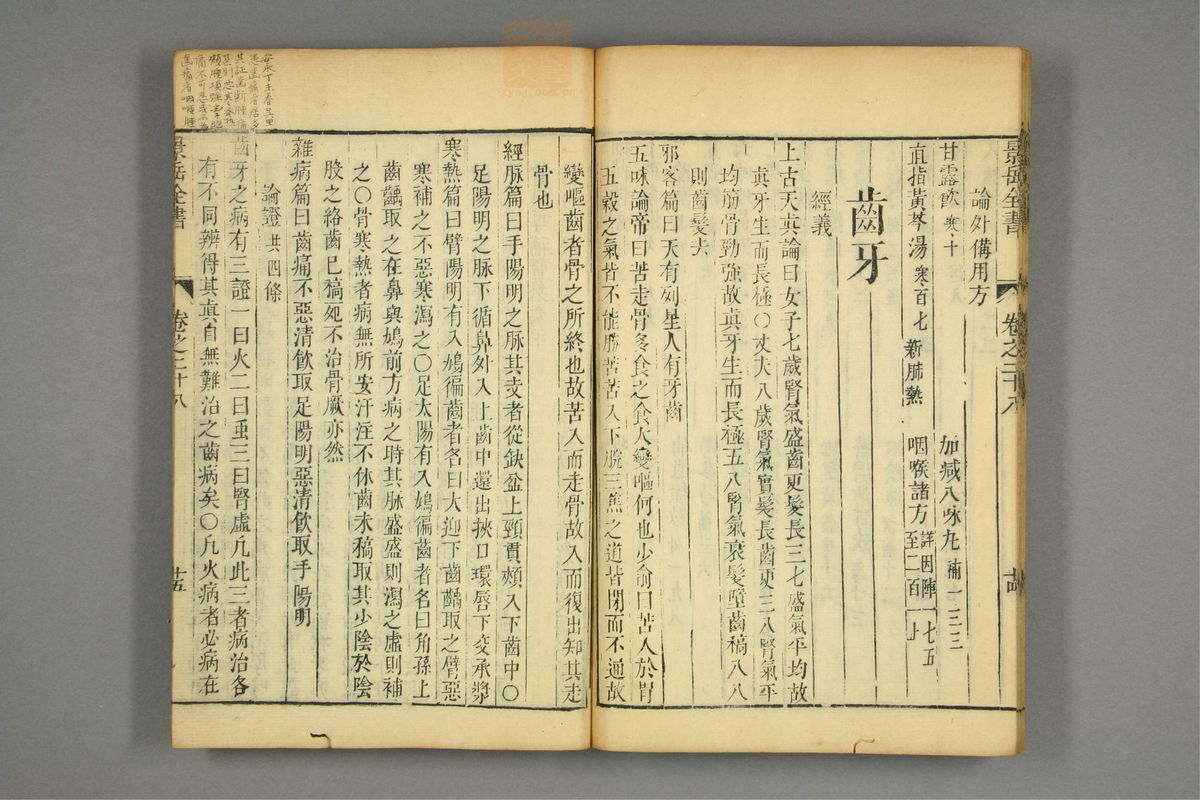 景岳全書 卷之二十八
論外備用方
甘露飲 寒十 加減八味丸 補一二二
直指黃芩湯 寒百七 新肺熱 咽喉諸方 詳因陣一七五至二百一十
齒牙
經義
上古天真論曰女子七歲腎氣盛齒更髮長三七盛氣平均故
真牙生而長極〇丈夫八歲腎氣實髮長齒更三八腎氣平
均筋骨勁強故真牙生而長極五八腎氣衰髮墮齒稿八八
則齒髮去
邪客篇曰天有列星人有牙齒
五味論帝曰苦走骨多食之令人變嘔何也少俞曰苦入於胃
五穀之氣皆不能勝苦苦入下脘三焦之道皆閉而不通故
變嘔齒者骨之所終也故苦入而走骨故入而復出知其走
骨也
經脉篇曰手陽明之脉其支者從缺盆上頸貫頰入下齒中〇
足陽明之脉下循鼻外入上齒中還出挾口環唇下交承漿
寒熱篇曰臂陽明有入鳩徧齒者名曰大迎下齒齲取之臂惡
寒補之不惡寒瀉之〇足太陽有入鳩徧齒者名曰角孫上
齒齲取之在鼻與鳩前方病之時其脉盛盛則瀉之虛則補
之〇骨寒熱者病無所安汗注不休齒未稿取其少陰於陰
股之絡齒已稿死不治骨厥亦然
雜病篇曰齒痛不惡清飲取足陽明惡清飲取手陽明
論證 共四條
齒牙之病有三證一曰火二曰虫三曰腎虛凡此三者病治各
有不同辨得其真自無難治之齒病矣〇凡火病者必病在
景岳全書 卷之二十八 廿五